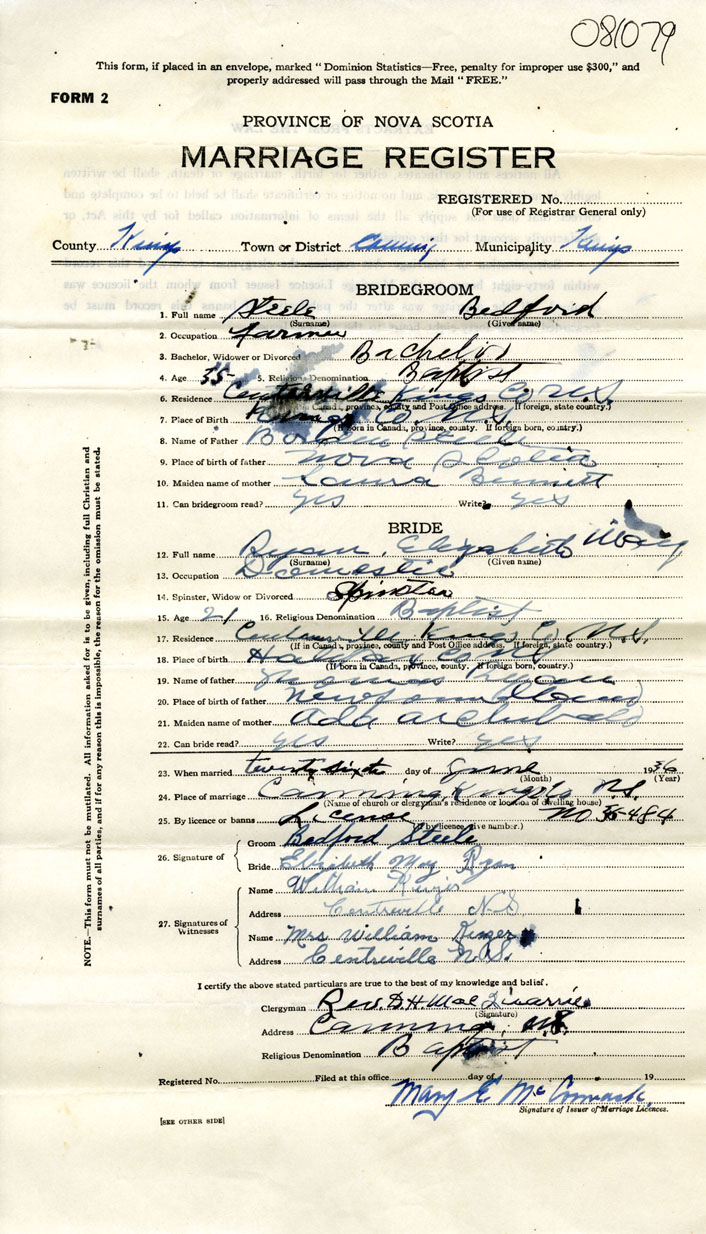 081079
This form, if placed in an envelope, marked "Dominion Statistics—Free, penalty for improper use $300," and
properly addressed will pass through the Mail "FREE."
FORM 2
PROVINCE OF NOVA SCOTIA
MARRIAGE REGISTER
REGISTERED No.
(For use of Registrar General only)
County Kings Town or District Canning Municipality Kings
BRIDEGROOM
1. Full name Steele Bedford
(Surname) (Given name)
2. Occupation Farmer
3. Bachelor, Widower or Divorced Bachelor
4. Age 35 5. Religious Denomination Baptist
6. Residence Centreville Kings Co N.S.
(If in Canada, province, county and Post Office address. If foreign, state country.)
7. Place of Birth Kings Co. N.S.
(If born in Canada, province, county. If foreign born, country.)
8. Name of Father Steele
9. Place of birth of father Nova Scotia
10. Maiden name of mother Laura
11. Can bridegroom read? yes Write? yes
BRIDE
12. Full name Ryan, Elizabeth May
(Surname) (Given name)
13. Occupation Domestic
14. Spinster, Widow or Divorced Spinster
15. Age 21 16. Religious Denomination Baptist
17. Residence Centreville Kings Co N.S.
(If in Canada, province, county and Post Office address. If foreign, state country.)
18. Place of birth
(If born in Canada, province, county. If foreign born, country.)
19. Name of father Thomas Ryan
20. Place of birth of father Newfoundland
21. Maiden name of mother Ada Archibald
22. Can bride read? yes Write? yes
23. When married twenty sixth day of June 1936
(Month) (Year)
24. Place of marriage Canning Kings N.S.
(Name of church or clergyman's residence or location of dwelling house)
25. By licence or banns License No 35484
(If by licence, give number.)
26. Signature of
Groom Bedford Steele
Bride Elizabeth May Ryan
27. Signatures of Witnesses
Name William
Address Centreville N.S
Name Mrs William
Address Centreville N.S.
I certify the above stated particulars are true to the best of my knowledge and belief.
Clergyman Rev. D.H. Mac
(Signature)
Address Canning, N.S.
Religious Denomination Baptist
Registered No. Filed at this office day of 19
Mary E McCormack
Signature of Issuer of Marriage Licences.
[SEE OTHER SIDE]
NOTE.—This form must not be mutilated. All information asked for is to be given, including full Christian and
surnames of all parties, and if for any reason this is impossible, the reason for the omission must be stated.